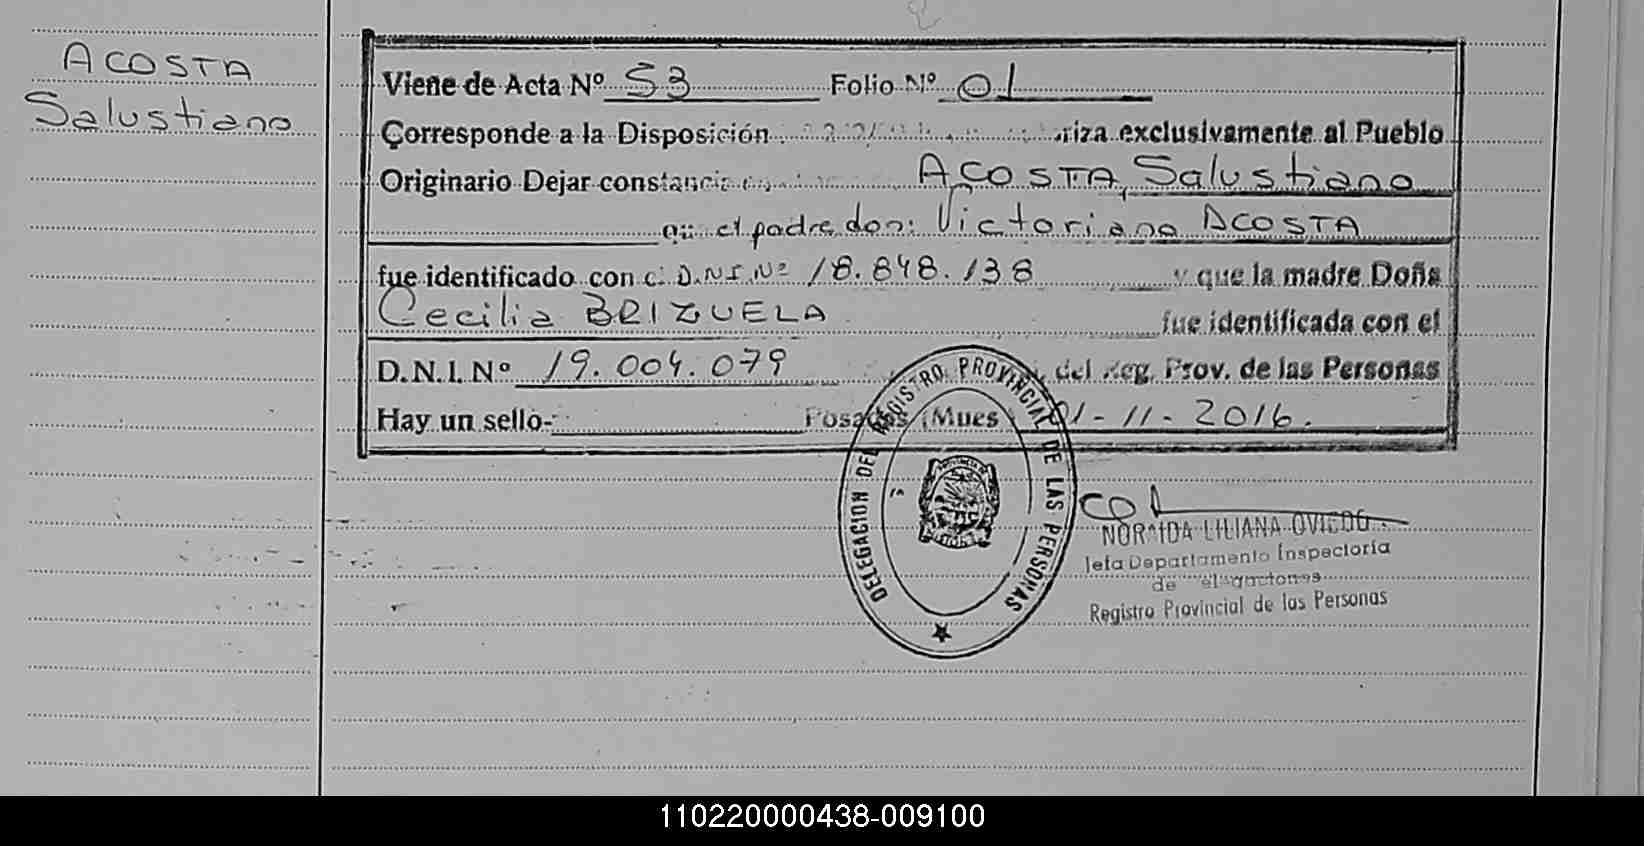 ACOSTA
Salustiano
Viene de Acta Nº 53 Folio Nº 01
Corresponde a la Disposición exclusivamente al Pueblo
Originario Dejar constancia ACOSTA, Salustiano
el padre don: Victoriano ACOSTA
fue identificado con D.N.I.Nº 18.848.138 y que la madre Doña
Cecilia BRIZUELA fue identificada con el
D.N.I. Nº 19.004.079 del Reg. Prov. de las Personas
Hay un sello- Posadas (Mnes 01-11-2016.
DELEGACION DEL REGISTRO PROVINCIAL DE LAS PERSONAS
NORMIDA LILIANA OVIEDO
Jefa Departamento Inspectoría
de
Registro Provincial de las Personas
110220000438-009100